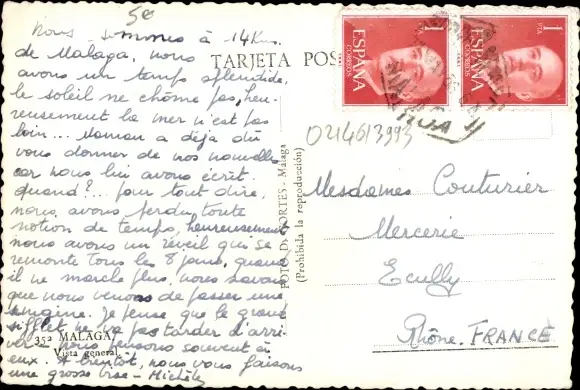 5€
Nous sommes à 14 Km.
de Malaga, nous
avons un temps splendide,
le soleil ne chôme pas, heu-
reusement la mer n'est pas
loin... Maman a déjà dû
vous donner de nos nouvelles
car nous lui avons écrit.
quand?... pour tout dire,
nous avons perdu toute
notion de temps, heureusement
nous avons un réveil qui se
remonte tous les 8 jours, quand
il ne marche plus, nous savons
que nous venons de passer une
semaine. Je pense que le grand
sifflet ne va pas tarder d'arri-
ver nous pensons souvent à
eux. A bientôt, nous vous faisons
une grosse bise - Michèle
35ª MALAGA
Vista general
TARJETA POS
FOTO DE CORTES - Malaga
(Prohibida la reproducción)
1 PTA
ESPAÑA
CORREOS
1 PTA
ESPAÑA
CORREOS
0214613993
Mesdames Couturier
Mercerie
Ecully
Rhône. FRANCE